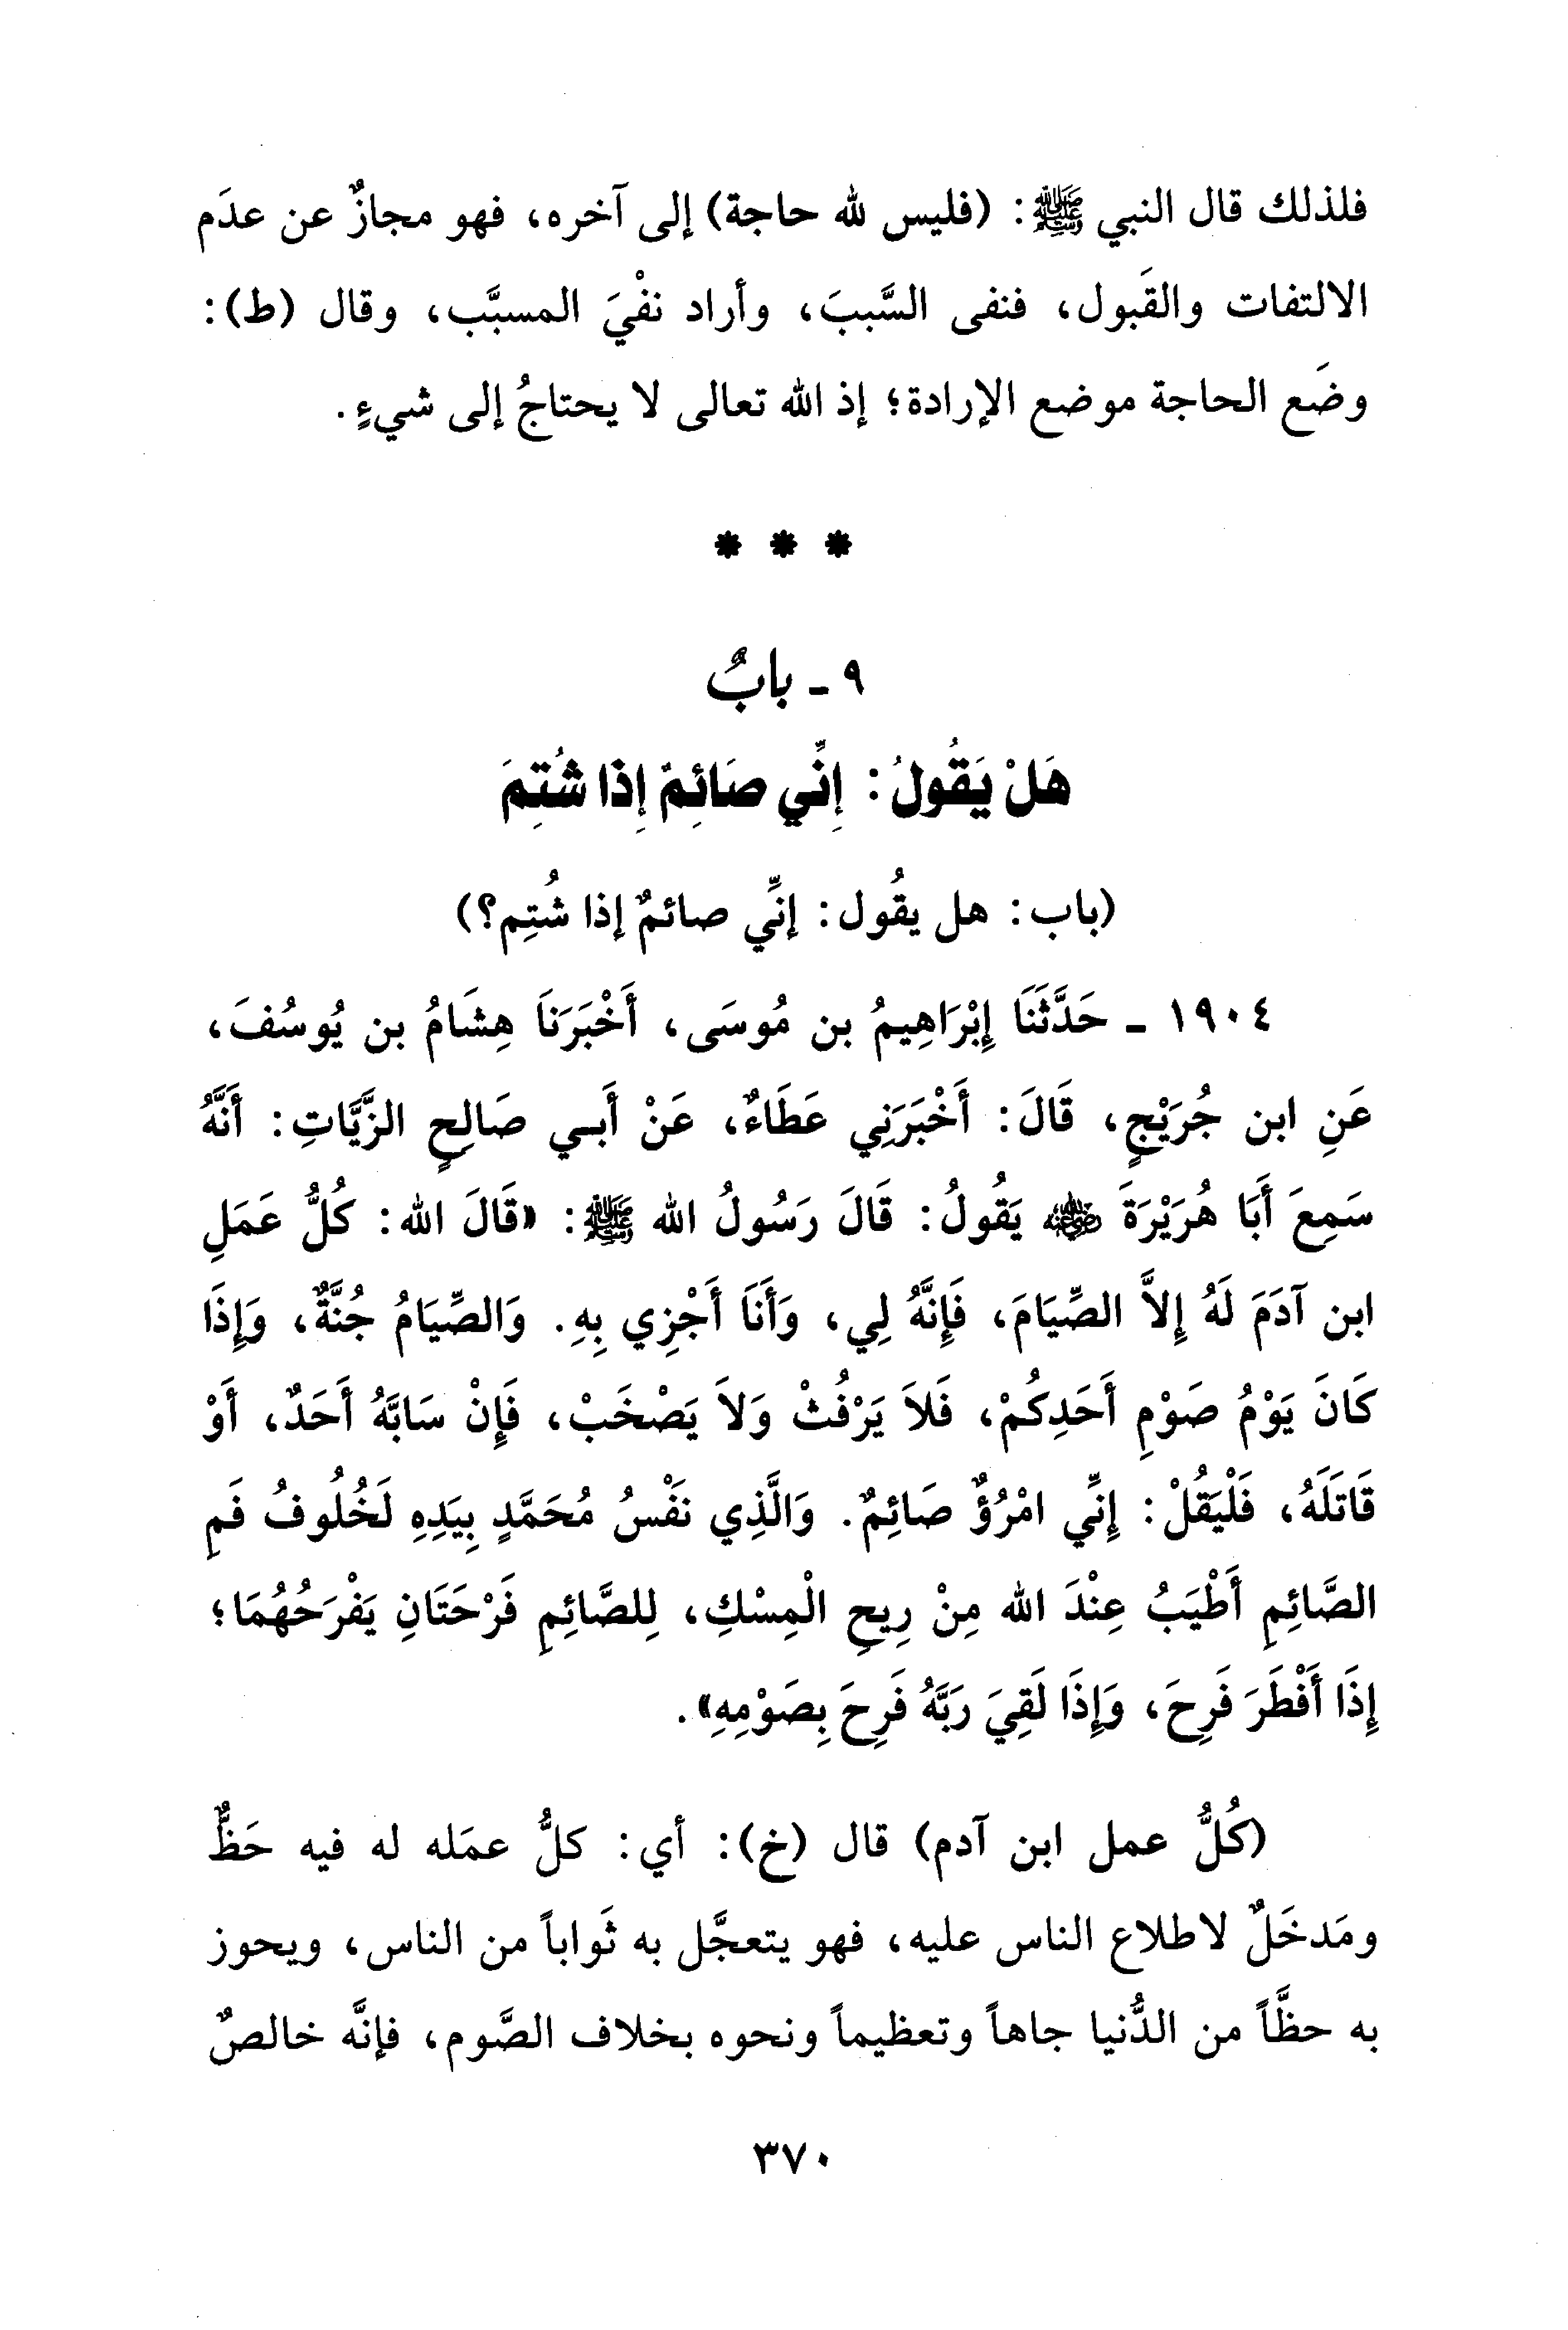 فلذلك قال النبي ﷺ: (فليس لله حاجة) إلى آخره، فهو مجازٌ عن عدَم
الالتفات والقَبول، فنفى السَّببَ، وأراد نفْيَ المسبَّب، وقال (ط):
وضَع الحاجة موضع الإرادة؛ إذ الله تعالى لا يحتاجُ إلى شيءٍ.
* * *
٩ - بابٌ
هَلْ يَقُولُ: إِنِّي صَائِمٌ إِذا شُتِمَ
(باب: هل يقُول: إنِّي صائمٌ إذا شُتِم؟)
١٩٠٤ - حَدَّثَنَا إِبْرَاهِيمُ بن مُوسَى، أَخْبَرَنَا هِشَامُ بن يُوسُفَ،
عَنِ ابن جُرَيْجٍ، قَالَ: أَخْبَرَنِي عَطَاءٌ، عَنْ أَبِي صَالِحٍ الزَّيَّاتِ: أَنَّهُ
سَمِعَ أَبَا هُرَيْرَةَ ﵁ يَقُولُ: قَالَ رَسُولُ الله ﷺ: «قَالَ الله: كُلُّ عَمَلِ
ابن آدَمَ لَهُ إِلاَّ الصِّيَامَ، فَإِنَّهُ لِي، وَأَنَا أَجْزِي بِهِ. وَالصِّيَامُ جُنَّةٌ، وَإِذَا
كَانَ يَوْمُ صَوْمِ أَحَدِكُمْ، فَلاَ يَرْفُثْ وَلاَ يَصْخَبْ، فَإِنْ سَابَّهُ أَحَدٌ، أَوْ
قَاتَلَهُ، فَلْيَقُلْ: إِنِّي امْرُؤٌ صَائِمٌ. وَالَّذِي نَفْسُ مُحَمَّدٍ بِيَدِهِ لَخُلُوفُ فَمِ
الصَّائِمِ أَطْيَبُ عِنْدَ الله مِنْ رِيحِ الْمِسْكِ، لِلصَّائِمِ فَرْحَتَانِ يَفْرَحُهُمَا؛
إِذَا أَفْطَرَ فَرِحَ، وَإِذَا لَقِيَ رَبَّهُ فَرِحَ بِصَوْمِهِ».
(كُلُّ عمل ابن آدم) قال (خ): أي: كلُّ عمَله له فيه حَظٌّ
ومَدخَلٌ لاطلاع الناس عليه، فهو يتعجَّل به ثَواباً من الناس، ويحوز
به حظَّاً من الدُّنيا جاهاً وتعظيماً ونحوه بخلاف الصَّوم، فإنَّه خالصٌ
٣٧٠